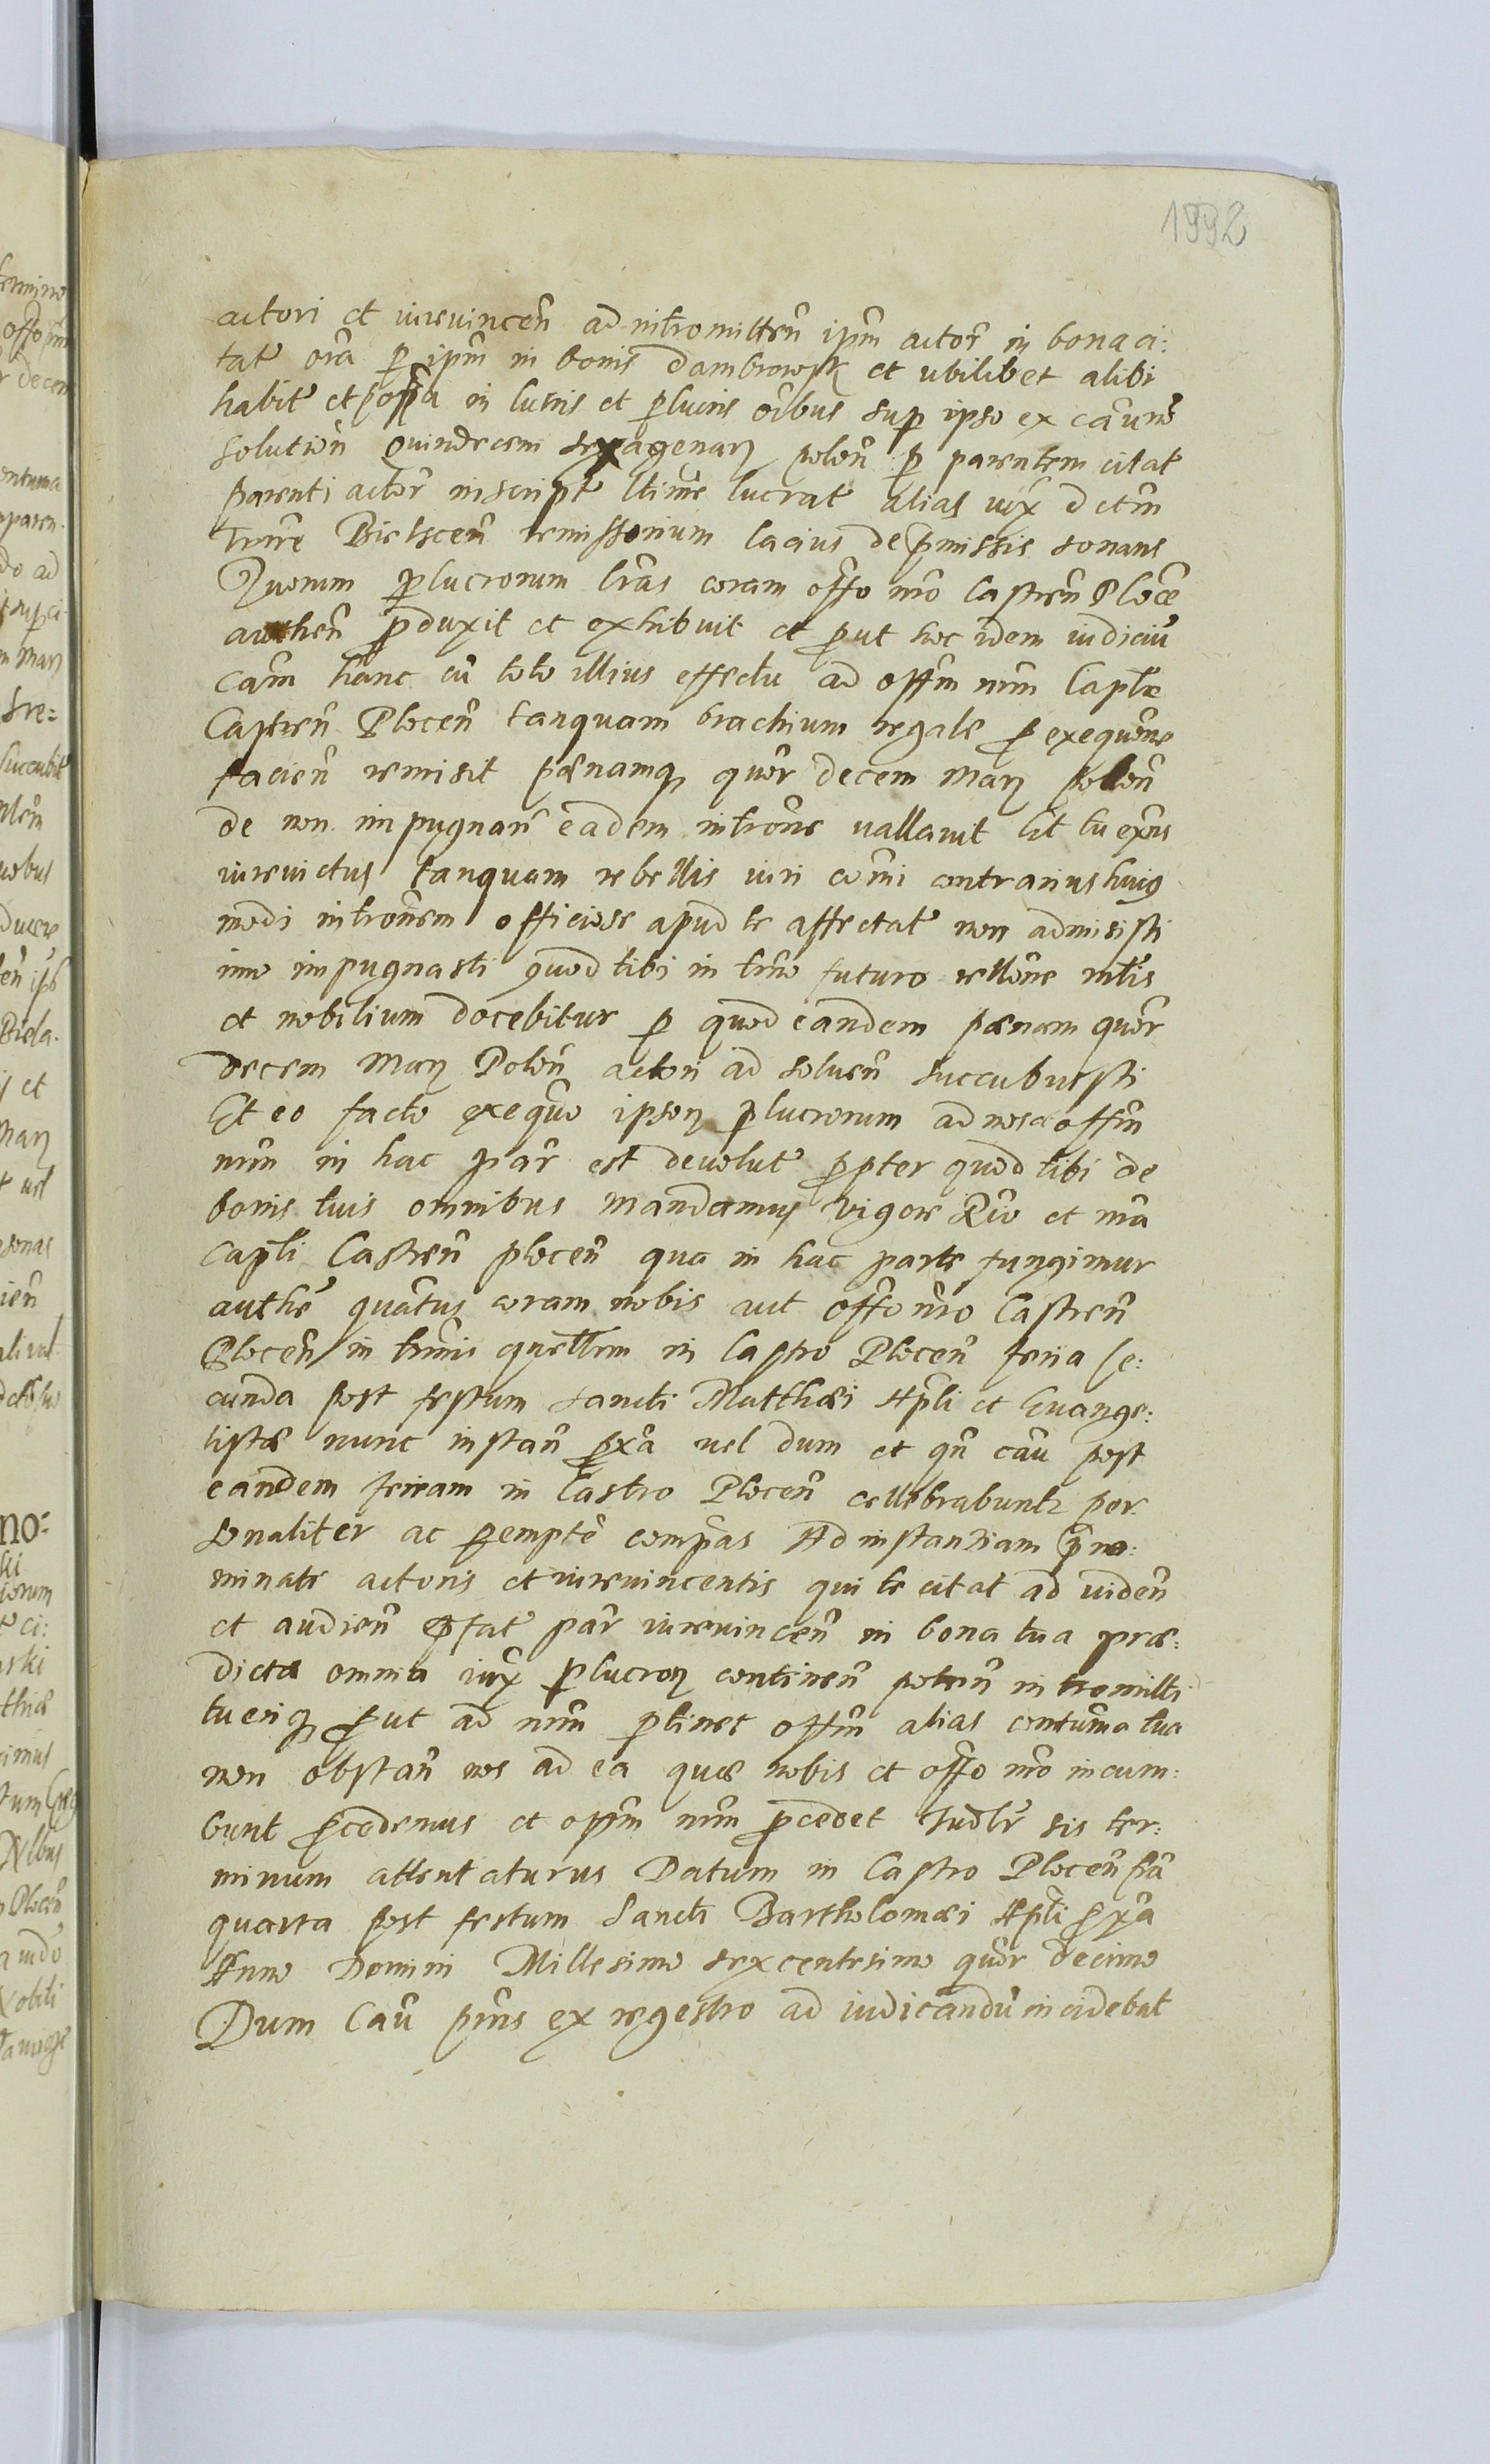 1992
actori et iurevincen̄ ad intromitten̄ ipm̄ actor̄ in bona ci:
tat oīa p ipm̄ in bonis Dambrowsk et ubilibet alibi
habit et in lucris et plucris oībus sup ipso ex
solution̄ quindecim sexagenarȝ polon̄ p parentem citat
parenti actor̄ inscript ltime lucrat alias iux dctm̄
Trrē Bielscen̄ remissorium lacius de pmissis sonans
Quorum plucrorum lrās coram offo nr̄o Castren̄ Ploce
authen̄ pduxit et exhibuit et put hoc idem iudiciū
Cām hanc cū toto illius effectu ad offm nrm̄ Captē
Castren̄ Plocen̄ tanquam brachium regale p exequōne
facien̄ remisit pœnamq quor decem Marȝ polon̄
de non impugnan̄ eadem intrōne vallavit tu
iurevictus tanquam rebellis iuri cōmi contrarius huiq
modi intrōnem officiose apud te affectat non admisisti
imo impugnasti quod tibi in trno futuro rellōne mlis
et nobilium docebitur p quod eandem pœnam quor
decem Marȝ Polon̄ actori ad soluen̄ succubuisti
Et eo facto exequo ipsorȝ plucrorum ad nos et offm̄
nrm̄ in hac par est devolut ppter quod tibi de
bonis tuis omnibus mandamus vigore Rio et nrā
Capli Castren̄ plocen̄ qua in hac parte fungimur
authē quātus coram nobis aut offo nro Castren̄
Plocen̄ in trmis qrellrm in Castro Plocen̄ feria se:
cunda post festum sancti Matthæi Apli et Evange:
listæ nunc instan̄ pxā vel dum et qn̄ cāu post
eandem feriam in Castro Plocen̄ cellebrabuntr per:
sonaliter ac pemptē compas Ad instantiam pno:
minate actoris et iurevincentis qui te citat ad viden̄
et audien̄ pfat par iurevincen̄ in bona tua præ:
dicta omnia iux plucrorȝ continen̄ poten̄ intromitti
tueriq put ad nrm̄ ptinet offm̄ alias contuma tua
non obstan̄ nos ad ea quæ nobis et offo nro incum:
bunt pcedemus et offm nrm̄ pcedet Iudlr sis ter:
minum attentaturus Datum in Castro Plocen̄ fiā
quarta post festum Sancti Bartholomæi Apli pxā
Anno Domini Millesimo sexcentesimo quor decimo
Dum Cāu pns ex regestro ad iudicandū incidebat